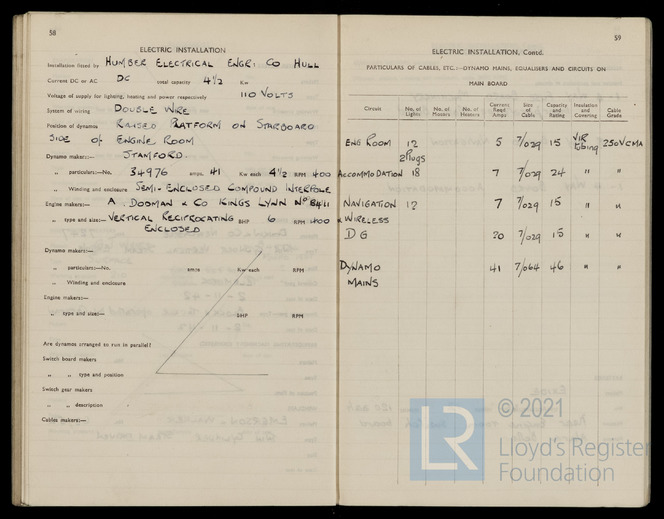 58
ELECTRIC INSTALLATION
Installation fitted by HUMBER ELECTRICAL ENGR: CO HULL
Current DC or AC DC total capacity 4 1/2 Kw
Voltage of supply for lighting, heating and power respectively 110 VOLTS
System of wiring DOUBLE WIRE
Position of dynamos RAISED PLATFORM ON STARBOARD
SIDE OF ENGINE ROOM
Dynamo makers:— STAMFORD.
„ particulars:—No. 34976 amps. 41 Kw each 4 1/2 RPM 400
„ Winding and enclosure SEMI-ENCLOSED COMPOUND INTERPOLE
Engine makers:— A. DODMAN & CO KINGS LYNN No 8411
„ type and size:— VERTICAL RECIPROCATING BHP 6 RPM 400
ENCLOSED
Dynamo makers:—
„ particulars:—No. amps Kw each RPM
„ Winding and enclosure
Engine makers:—
„ type and size:— BHP RPM
Are dynamos arranged to run in parallel?
Switch board makers
„ „ type and position
Switch gear makers
„ „ description
Cables makers:—
59
ELECTRIC INSTALLATION, Contd.
PARTICULARS OF CABLES, ETC.:—DYNAMO MAINS, EQUALISERS AND CIRCUITS ON
MAIN BOARD
Circuit No. of Lights No. of Motors No. of Heaters Current Reqd. Amps Size of Cable Capacity and Rating Insulation and Covering Cable Grade
ENG ROOM 12 5 7/029 15 VIR tubing 250V CMA
2 Plugs
ACCOMMODATION 18 7 7/029 24 „ „
NAVIGATION 12 7 7/029 15 „ „
& WIRELESS
D G 20 7/029 15 „ „
DYNAMO 41 7/064 46 „ „
MAINS
© 2021
LR
Lloyd's Register
Foundation